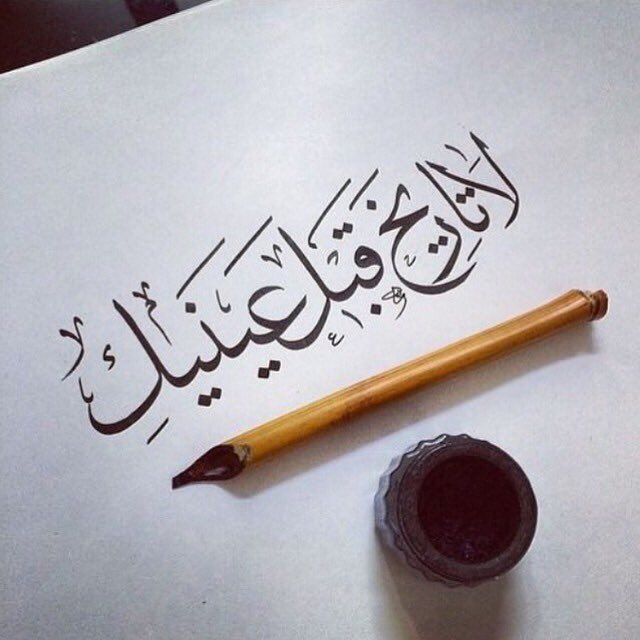 لا تاريخ قبل عينيكِ